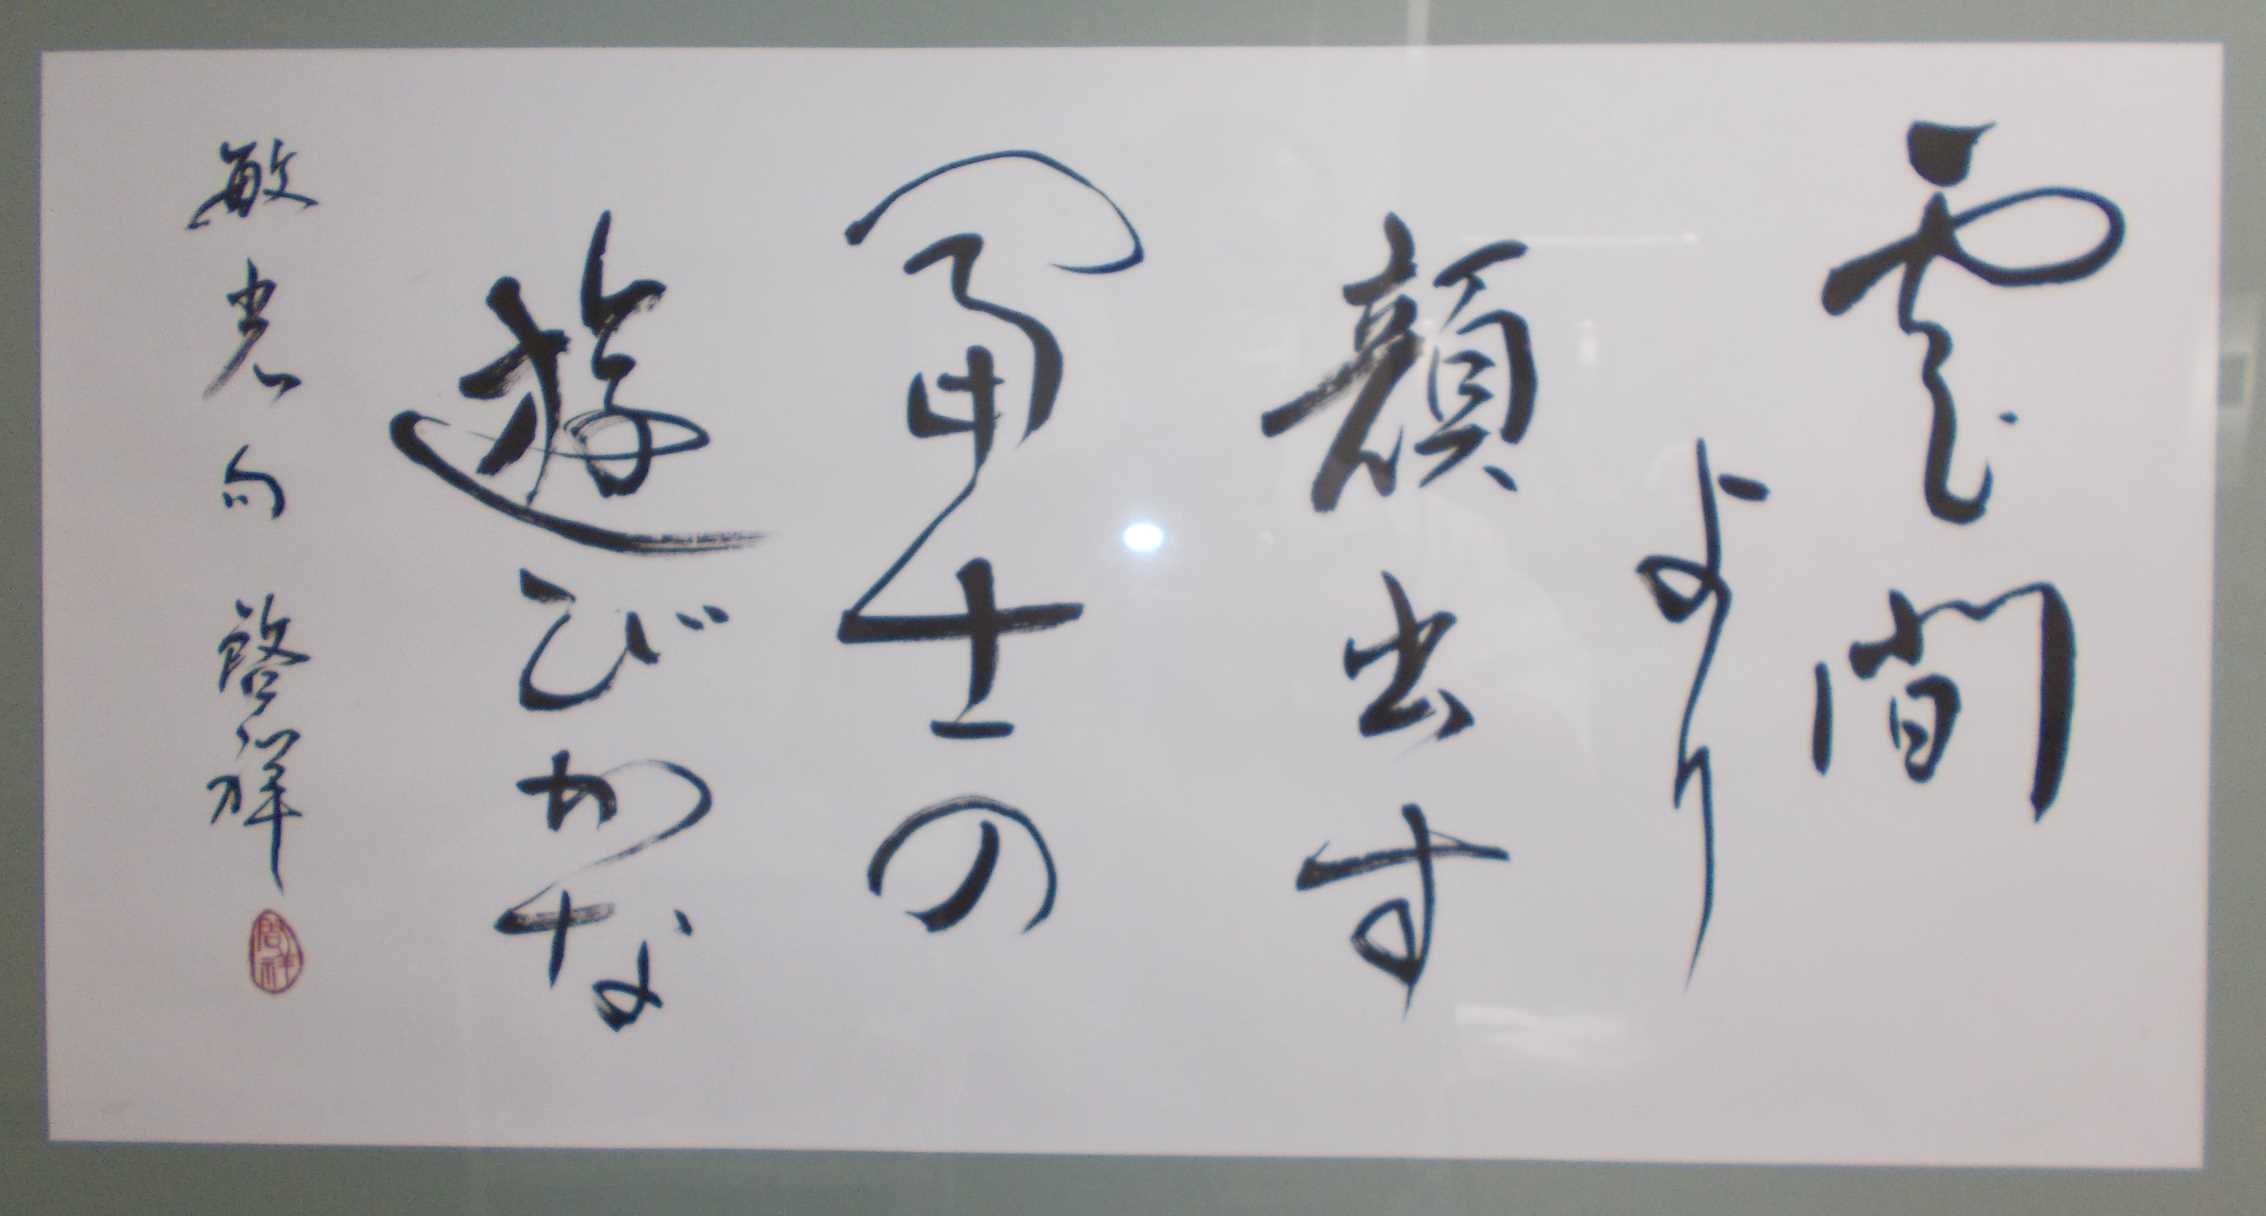 雲間
より
顔出す
富士の
遊びかな
敏光句 啓祥
啓祥